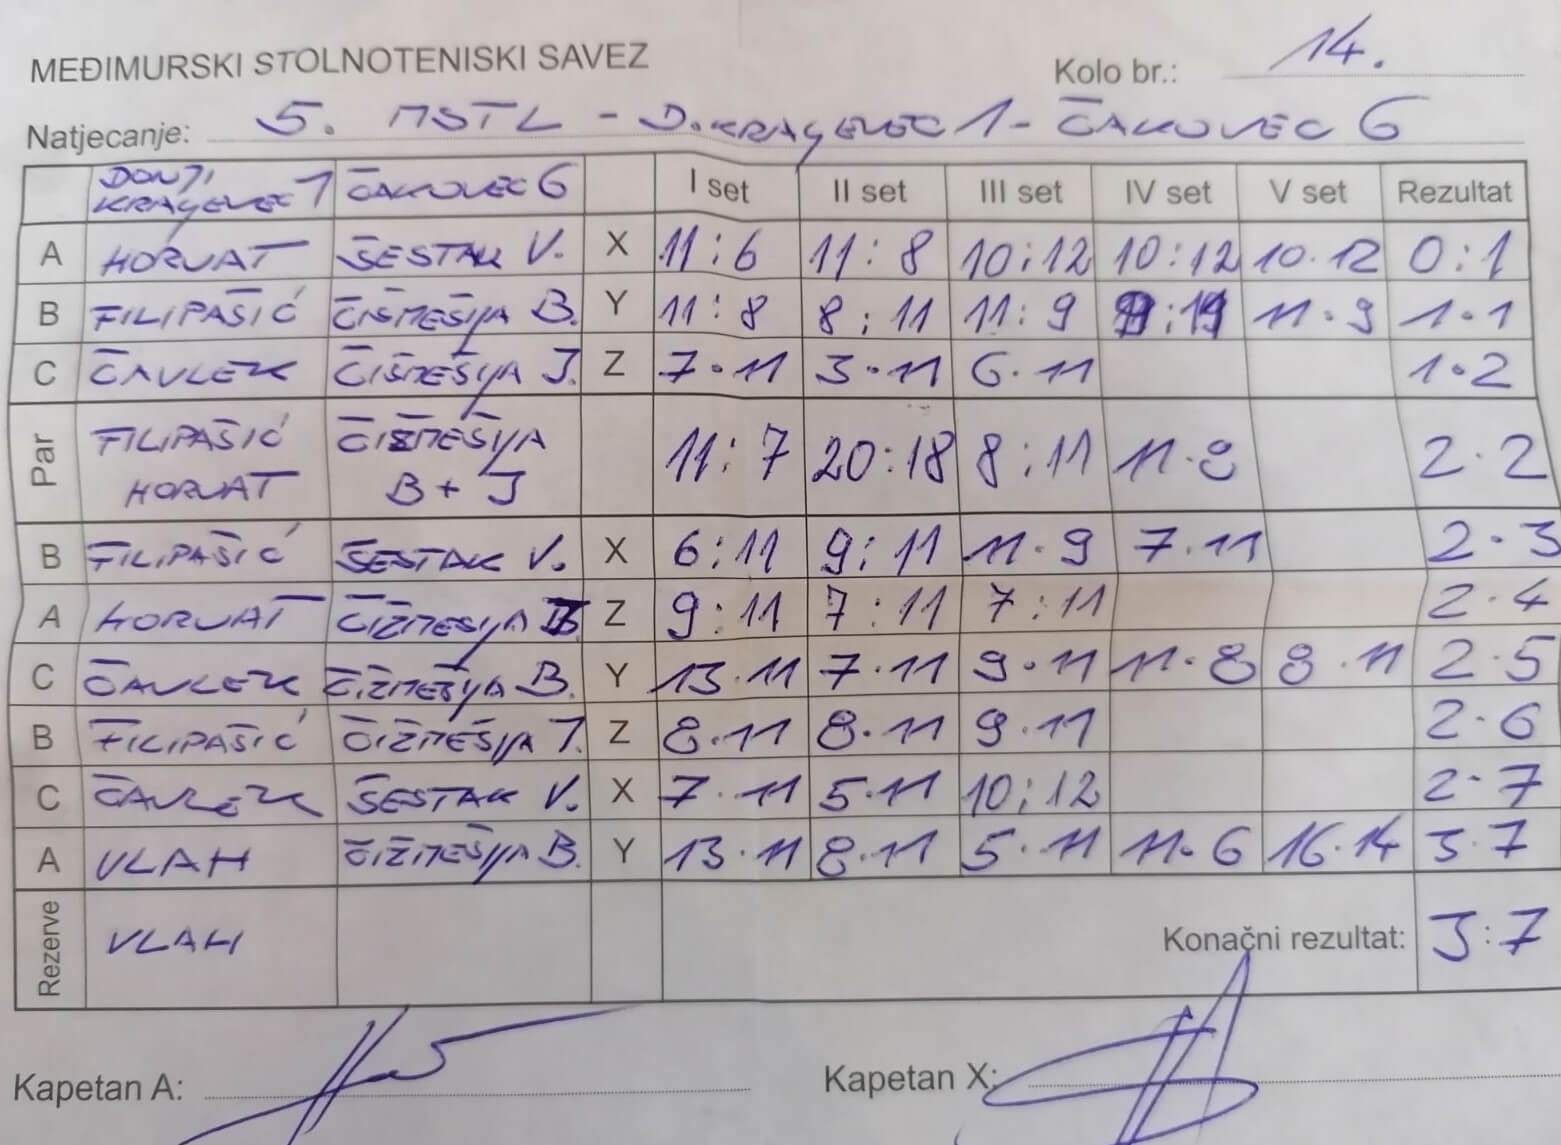 MEĐIMURSKI STOLNOTENISKI SAVEZ
Kolo br.: 14.
Natjecanje: 5. MSTL - D.KRALJEVEC 1 - ČAKOVEC 6
DONJI KRALJEVEC 1 ČAKOVEC 6 I set II set III set IV set V set Rezultat
A HORVAT ŠESTAK V. X 11:6 11:8 10:12 10:12 10.12 0:1
B FILIPAŠIĆ ČIŠMEŠIJA B. Y 11:8 8:11 11:9 :11 11.9 1.1
C ČAVLEK ČIŠMEŠIJA J. Z 7.11 3.11 6.11 1.2
Par FILIPAŠIĆ HORVAT ČIŽMEŠIJA B + J 11:7 20:18 8:11 11.8 2.2
B FILIPAŠIĆ ŠESTAK V. X 6:11 9:11 11.9 7.11 2.3
A HORVAT ČIŽMEŠIJA Z 9:11 7:11 7:11 2.4
C ČAVLEK ČIŽMEŠIJA B. Y 13.11 7.11 9.11 11.8 8.11 2.5
B FILIPAŠIĆ ČIŽMEŠIJA J. Z 8.11 8.11 9.11 2.6
C ČAVLEK ŠESTAK V. X 7.11 5.11 10:12 2.7
A VLAH ČIŽMEŠIJA B. Y 13.11 8.11 5.11 11.6 16.14 3.7
Rezerve VLAH Konačni rezultat: 3:7
Kapetan A: Kapetan X: